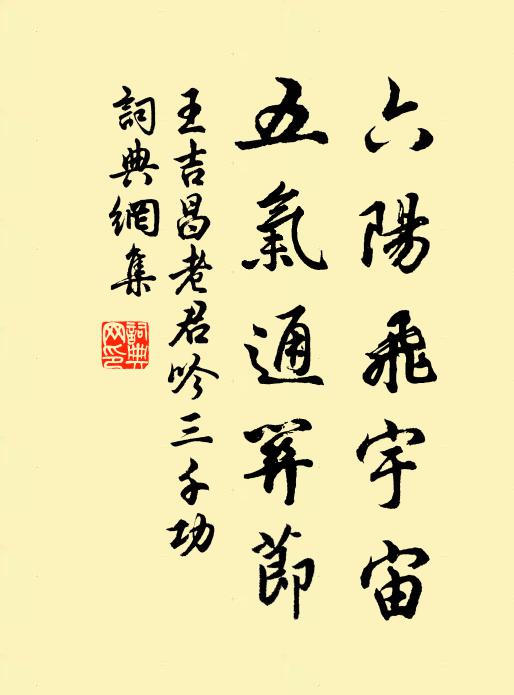 六陽飛宇宙
五氣通關節
王吉昌老君吟三千功
詞典網集
詞典網印